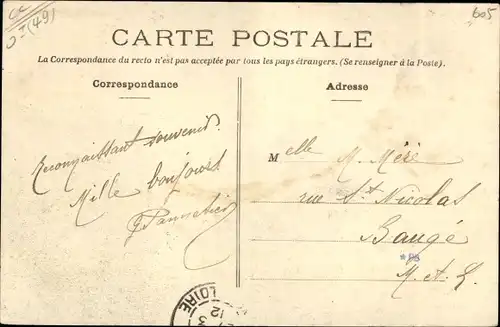 605
CARTE POSTALE
La Correspondance du recto n'est pas acceptée par tous les pays étrangers. (Se renseigner à la Poste).
Correspondance
Adresse
Reconnaissant souvenir.
Mille bonjours
Melle M. Méré
rue St Nicolas
Baugé
M. et L.
LOIRE